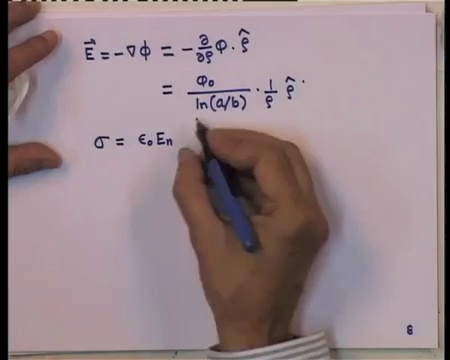 E⃗ = -∇ϕ = -∂/∂ρ φ · ρ̂
= φ₀/ln(a/b) · 1/ρ ρ̂ .
σ = ε₀Eₙ
8